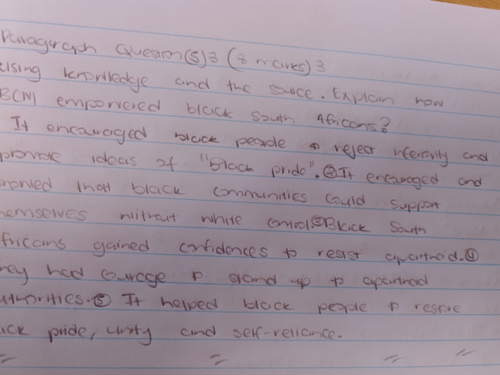 Paragraph Question(s): (8 marks):
using knowledge and the source. Explain how
BCM empowered black South Africans?
It encouraged black people to reject inferiority and
promote ideas of "Black pride". ② It encouraged and
that black communities could support
themselves without white control ③ Black South
Africans gained confidences to resist apartheid. ④
They had courage to stand up to apartheid
authorities. ⑤ It helped black people to restore
black pride, unity and self-reliance.